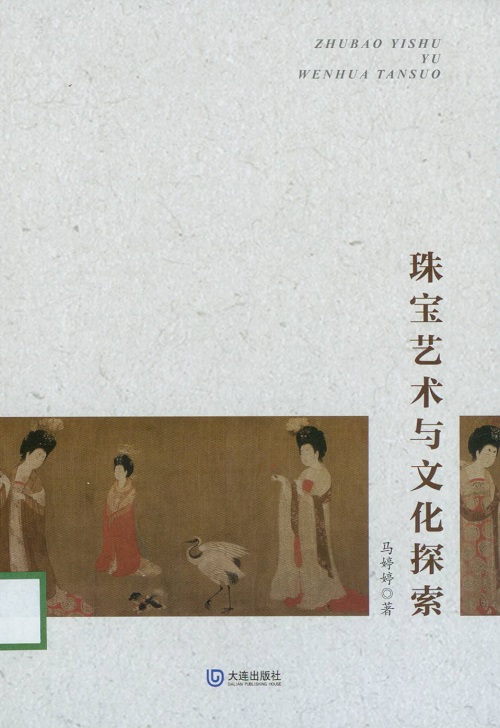 ZHUBAO YISHU
YU
WENHUA TANSUO
珠宝艺术与文化探索
马婷婷◎著
大连出版社
DALIAN PUBLISHING HOUSE